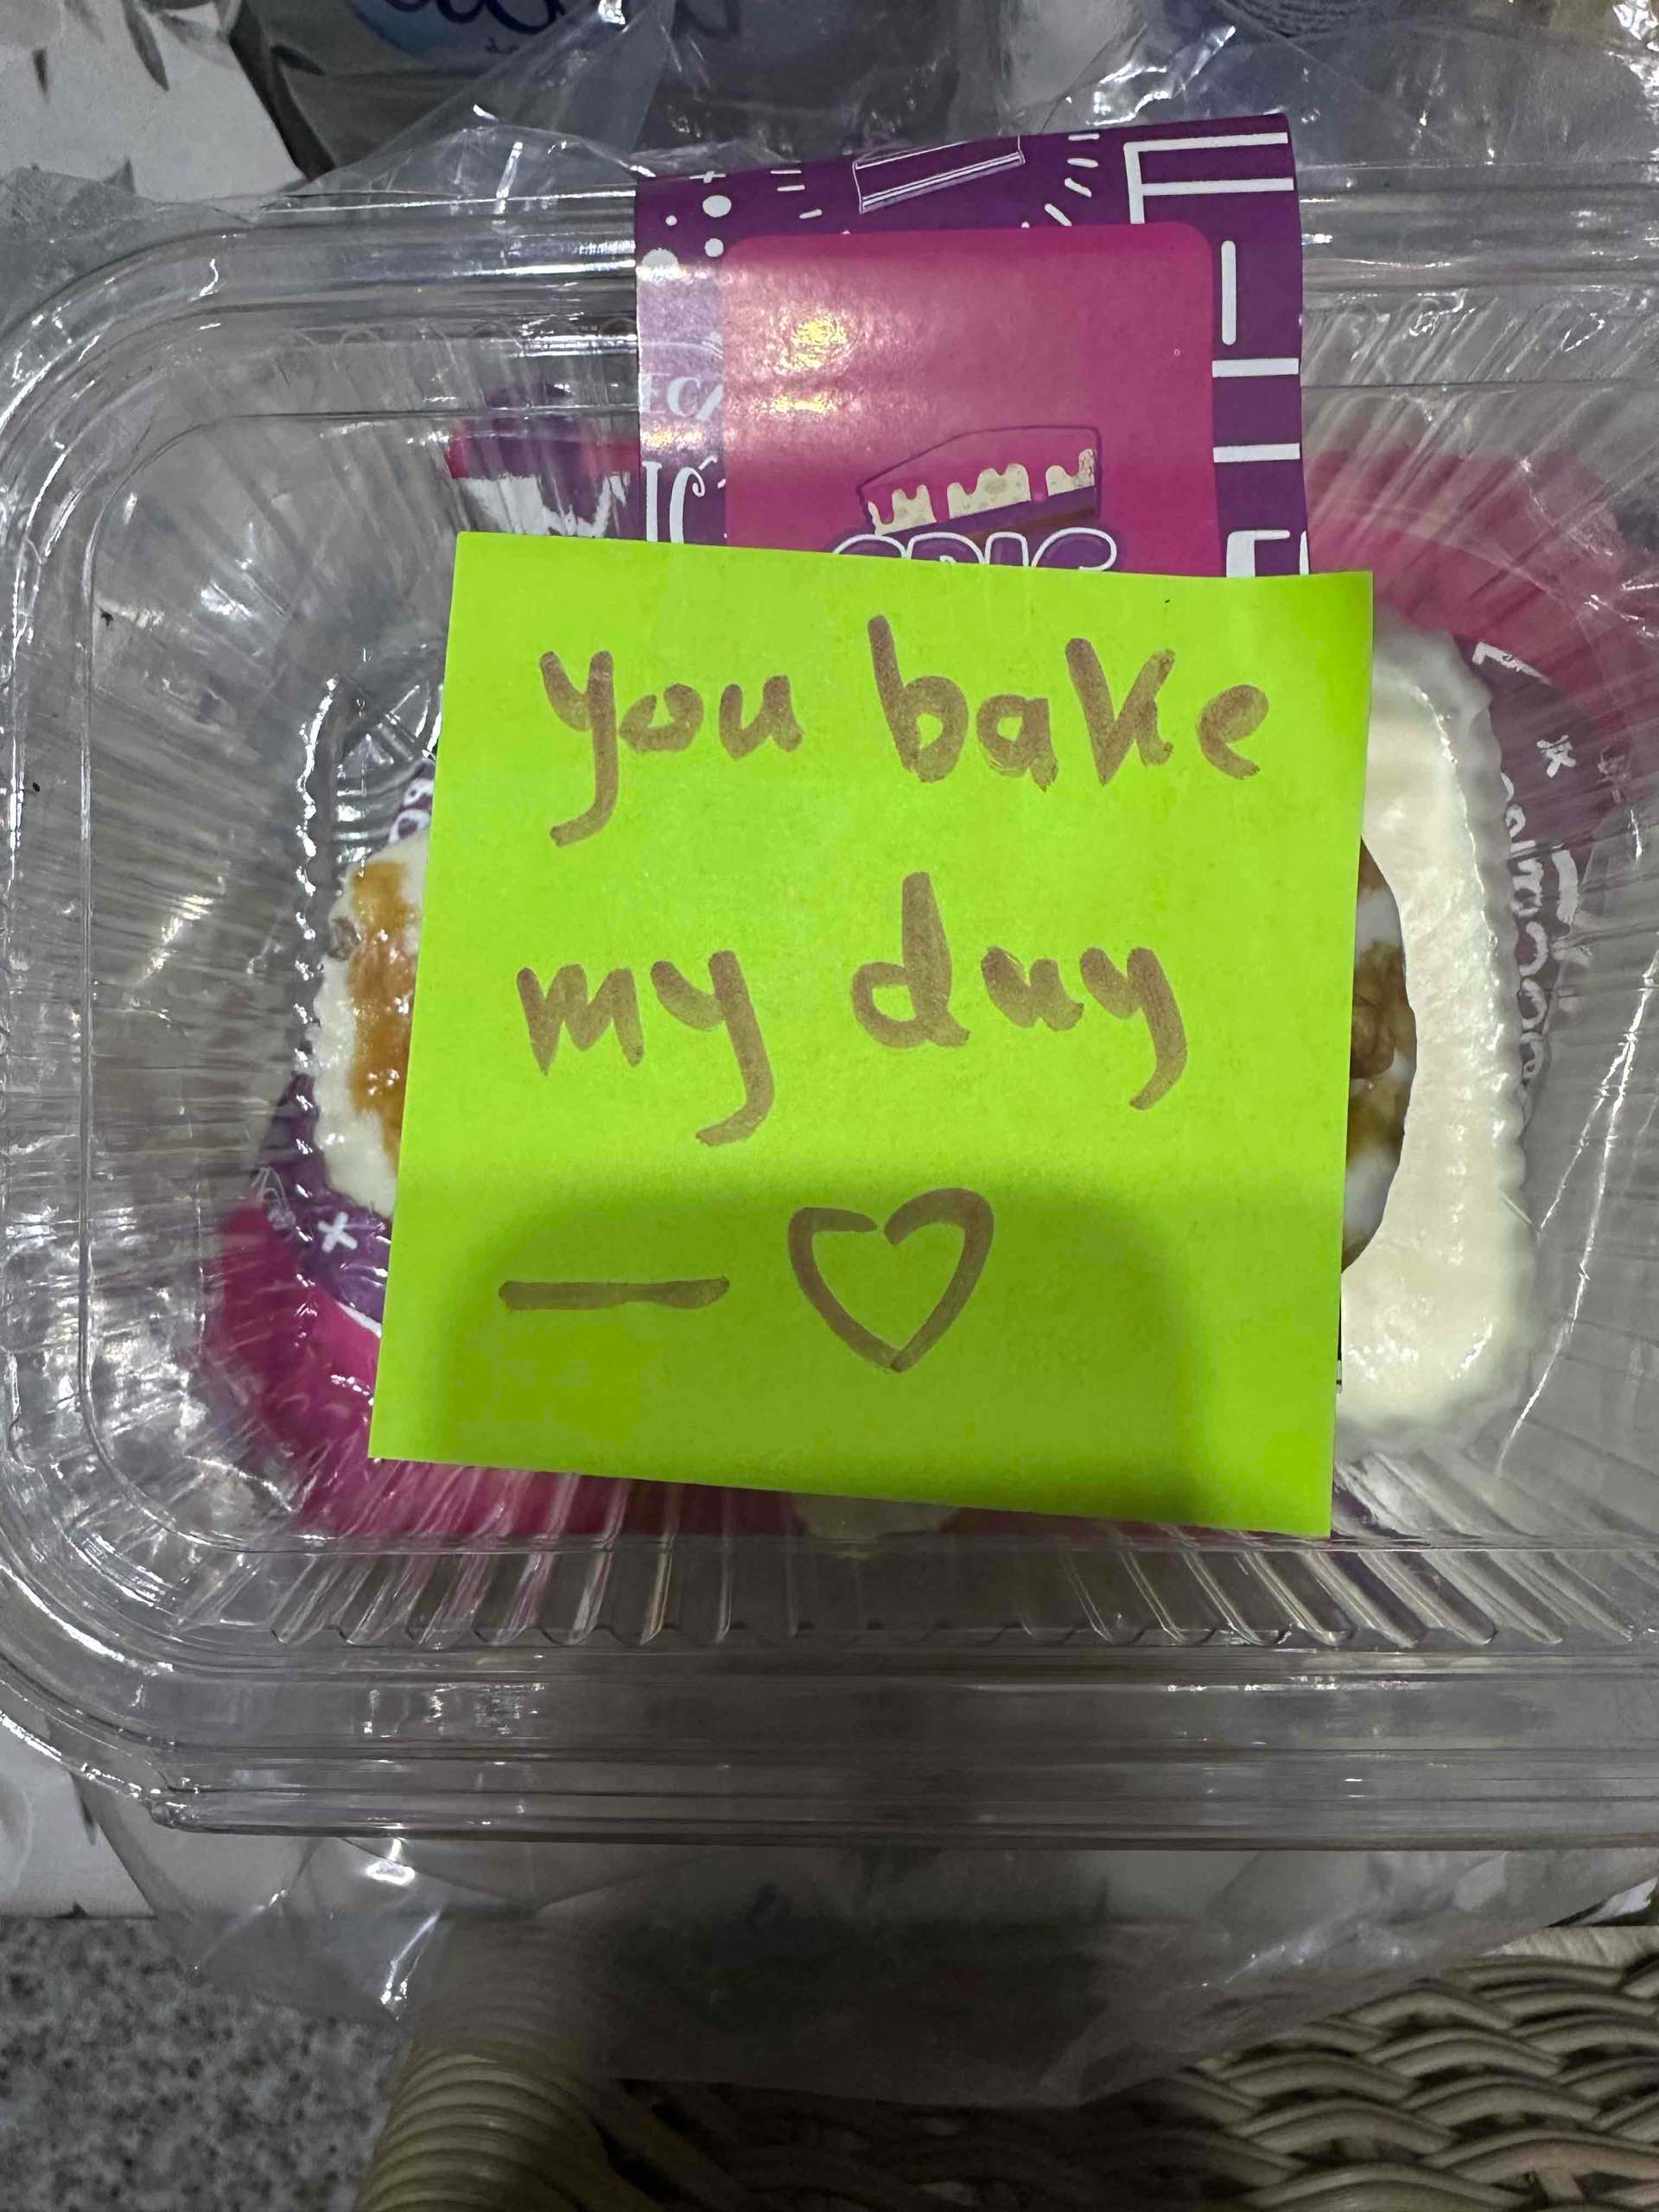 EPIC
you bake
my day
— ♡